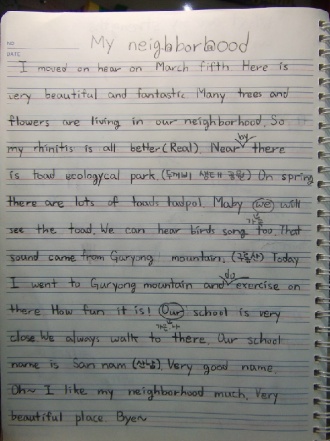 NO
DATE
My neighborhood
I moved on hear on March fifth Here is
very beautiful and fantastic Many trees and
flowers are living in our neighborhood. So
my rhinitis is all better(Real). Near by there
is toad ecologycal park.(두꺼비 생태 공원) On spring
there are lots of toads tadpol Maby we will
see the toad. We can hear birds song too. That
sound came from Guryong mountain. (구룡산) Today
I went to Guryong mountain and do exercise on
there How fun it is! Our school is very
close. We always walk to there. Our school
name is San nam (산남). Very good name.
Oh~ I like my neighborhood much. Very
beautiful place Bye~